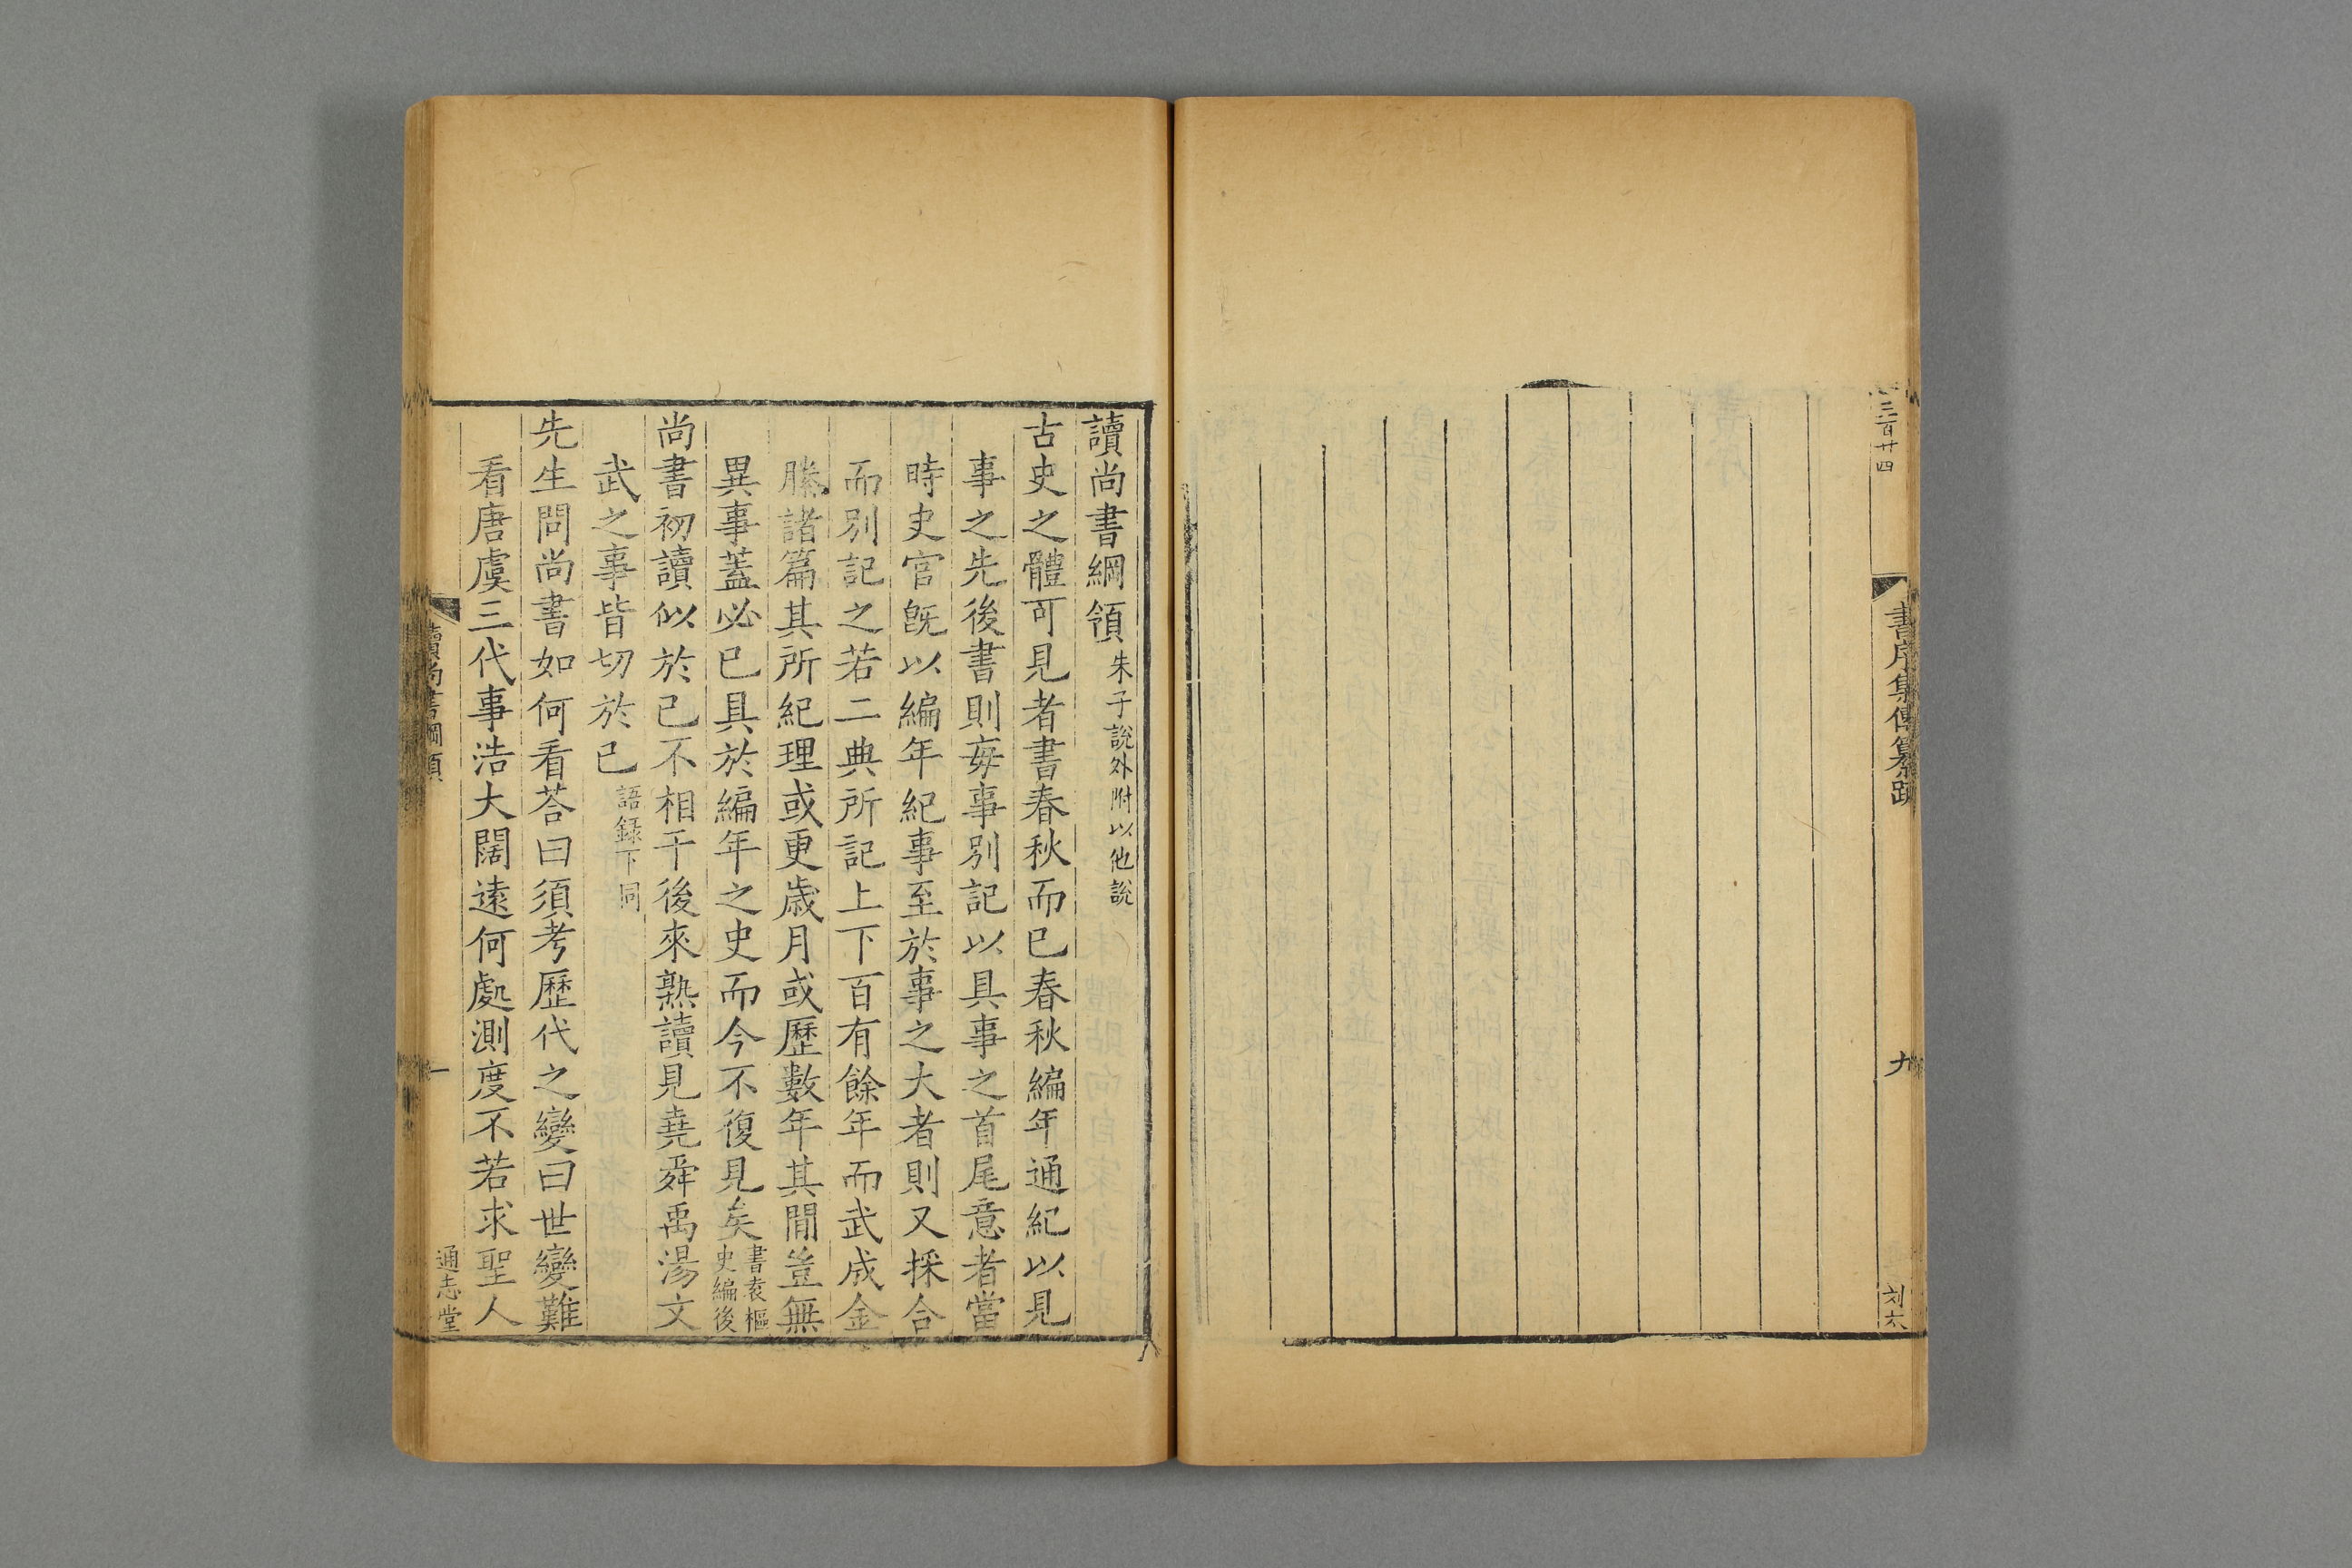 三百廿四
書序集傳纂疏
九
刘六
讀尚書綱領朱子說外附以他說
古史之體可見者書春秋而已春秋編年通紀以見
事之先後書則每事別記以具事之首尾意者當
時史官旣以編年紀事至於事之大者則又採合
而別記之若二典所記上下百有餘年而武成金
縢諸篇其所紀理或更歲月或歷數年其間豈無
異事蓋必已具於編年之史而今不復見矣書袁樞史編後
尚書初讀似於己不相干後來熟讀見堯舜禹湯文
武之事皆切於己語錄下同
先生問尚書如何看荅曰須考歷代之變曰世變難
看唐虞三代事浩大闊遠何處測度不若求聖人
讀尚書綱領
一
通志堂